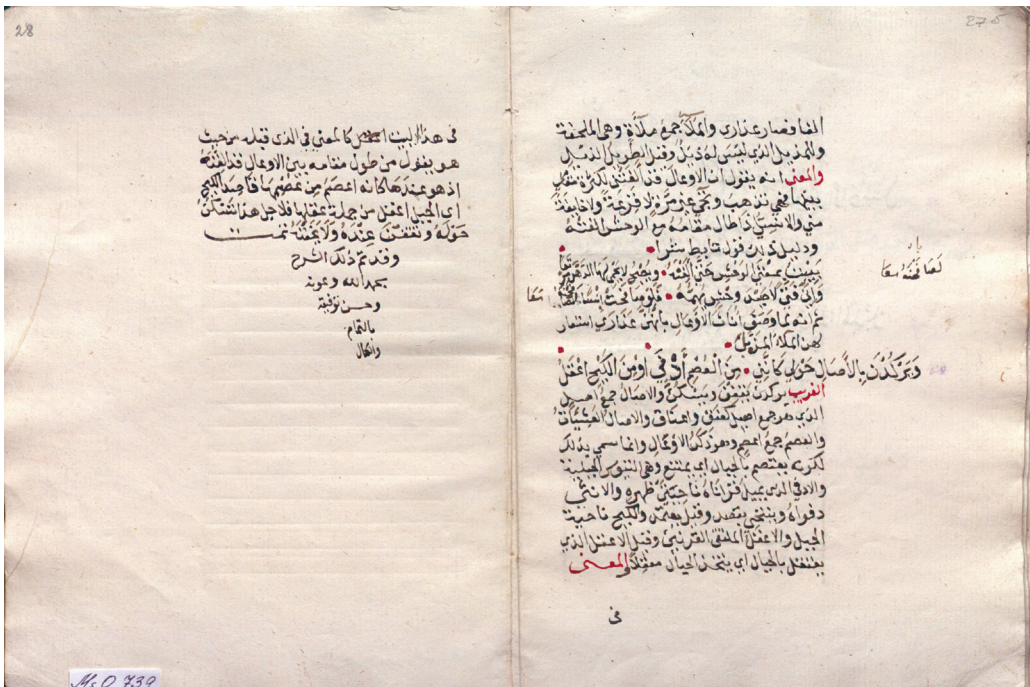 275
الفا فصار عذارى والملاء جمع ملاءة وهى الملحفة
والمذيل الذى ليس له ذيل وقيل الطويل الذيل
والمعنى انه يقول ان الاوعال قد الفتنى لكثرة تنقلى
بينها فهى تذهب وتجئ غير ولا خائفة
منى ولا اذ اطال مقامه مع الوحش الفته
ودليل ذلك قول تابط شرا
يبيت بمغنى الوحش حتى الفنه ويصبح لا يحمى لها الدهر مرتعا
فتى لا صيد وحش يهمه فلو صافحت انسا معا
ثم انه لما وصف اناث الاوعال بانهن عذارى استعار
لهن الملاء المذيل
وَيَركُدْنَ بِالآصَالِ حَوْلِى كَانَّنِى مِنَ الْعُصْمِ أَدْفَى اَوْ مِنَ الكِيحِ اعْقَلُ
الغريب يركدن يقفن ويسكن والاصال جمع اصل
الذى هو جمع اصيل كعنق واعناق والاصال العشيات
والعصم جمع اعصم وهو ذكر الاوعال وانما سمى بذلك
لكونه يعتصم بالجبال اى يمتنع وهى التيوس الجبلية
والادفى الذى يميل قرناه ناحيتى ظهره والانثى
دفواء وينتحى يقصد وقيل يعتمد والكيح ناحية
الجبل والاعقل الملتقى القرنين وقيل الاعقل الذى
يعتقل بالجبال اى يتخذ الجبال معقلا والمعنى
فى
28
فى هذا البيت كالمعنى فى الذى قبله من حيث
هو يقول من طول مقامه بين الاوعال قد الفته
اذ هو عندها كانه اعصم من عصمها قاصد الكيح
اى الجبل اعقل من جملة عقلها فلاجل هذا تسكن
حوله وتقفن عنده ولا يخفنه تمت
وقد تم ذلك الشرح
بحمد الله وعونه
وحسن توفيقه
بالتمام
والكمال
Ms O. 739